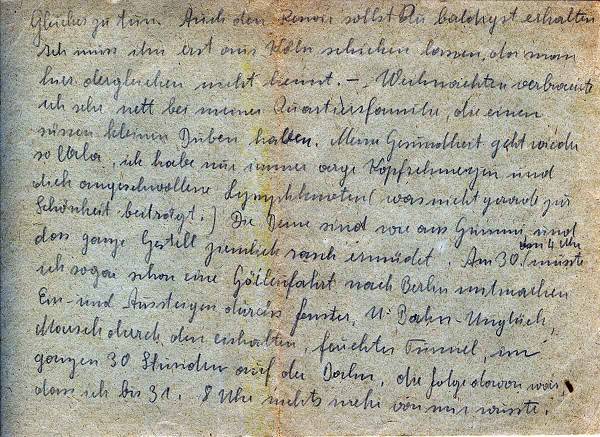 Gleiches zu tun. Auch den Renoir sollst Du baldigst erhalten
ich muss ihn erst aus Köln schicken lassen, da man
hier dergleichen nicht kennt. — Weihnachten verbrachte
ich sehr nett bei meiner Quartiersfamilie, die einen
süssen kleinen Buben haben. Meine Gesundheit geht wieder
so lala, ich habe nur immer arge Kopfschmerzen und
dick angeschwollene Lymphknoten (was nicht gerade zur
Schönheit beiträgt.) Die Beine sind wie aus Gummi und
das ganze Gestell ziemlich rasch ermüdet. Am 30. um 4 Uhr musste
ich sogar schon eine Höllenfahrt nach Berlin mitmachen
Ein- und Aussteigen durchs Fenster, U. Bahn-Unglück,
Marsch durch den Tunnel, im
ganzen 30 Stunden auf der Bahn, die Folge davon war,
dass ich bis 31. 8 Uhr nichts mehr von mir wusste.